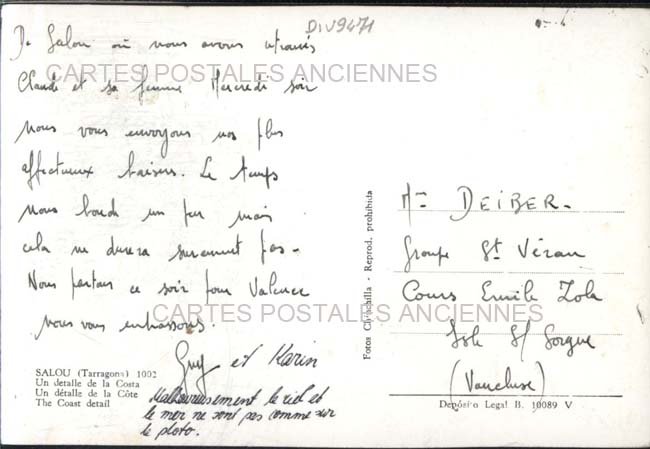 DIV9471
De Salou où nous avons retrouvés
CARTES POSTALES ANCIENNES
Claude et sa femme Mercredi soir
nous vous envoyons nos plus
affectueux baisers. Le temps
nous boude un peu mais
cela ne durera surement pas-
Nous partons ce soir pour Valence
CARTES POSTALES ANCIENNES
nous vous embrassons.
Guy et Karin
Malheureusement le ciel et
la mer ne sont pas comme sur
la photo.
SALOU (Tarragona) 1002
Un detalle de la Costa
Un détalle de la Côte
The Coast detail
Fotos Civichilla - Reprod. prohibida
DEIBER-
Groupe St Véran
Cours Emile Zola
Isle S/ Sorgue
(Vaucluse)
Depósito Legal B. 10089 V